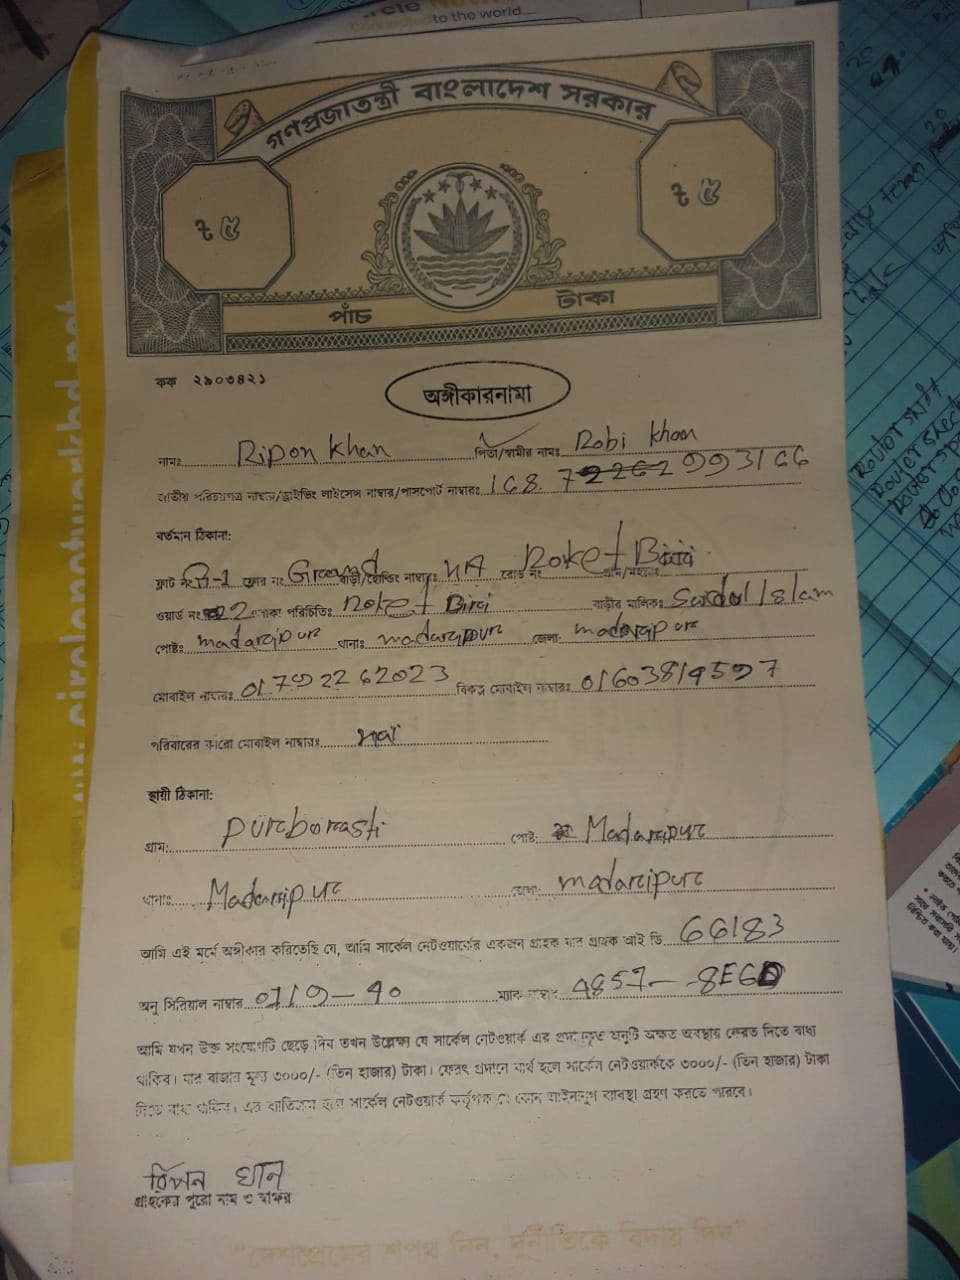 to the world....
গণপ্রজাতন্ত্রী বাংলাদেশ সরকার
৳ ৫ ৳ ৫
পাঁচ টাকা
কক ২৯০৩৪২১
অঙ্গীকারনামা
নামঃ Ripon Khan পিতা/স্বামীর নামঃ Robi Khan
জাতীয় পরিচয়পত্র নাম্বার/ড্রাইভিং লাইসেন্স নাম্বার/পাসপোর্ট নাম্বারঃ
বর্তমান ঠিকানা:
ফ্লাট নং ফ্লোর নং Ground বাড়ী/হোল্ডিং নাম্বারঃ NA রোড নং Roket Biri
ওয়ার্ড নং 2 এলাকা পরিচিতিঃ Roket Biri বাড়ীর মালিকঃ Saidul Islam
পোষ্টঃ madaripur থানাঃ madaripur জেলা: madaripur
মোবাইল নাম্বারঃ 01792262023 বিকল্প মোবাইল নাম্বারঃ 01603819597
পরিবারের কারো মোবাইল নাম্বারঃ
স্থায়ী ঠিকানা:
গ্রাম: পোষ্ট: Madaripur
থানাঃ Madaripur জেলা: madaripur
আমি এই মর্মে অঙ্গীকার করিতেছি যে, আমি সার্কেল নেটওয়ার্কের একজন গ্রাহক যার গ্রাহক আই ডি 66183
অনু সিরিয়াল নাম্বার ম্যাক নাম্বারঃ
আমি যখন উক্ত সংযোগটি ছেড়ে দিব তখন উল্লেক্ষ্য যে সার্কেল নেটওয়ার্ক এর প্রদানকৃত অনুটি অক্ষত অবস্থায় ফেরত দিতে বাধ্য
থাকিব। যার বাজার মূল্য ৩০০০/- (তিন হাজার) টাকা। ফেরৎ প্রদানে ব্যর্থ হলে সার্কেল নেটওয়ার্ককে ৩০০০/- (তিন হাজার) টাকা
দিতে বাধ্য থাকিব। এর ব্যতিক্রম হলে সার্কেল নেটওয়ার্ক কর্তৃপক্ষ যে কোন আইনানুগ ব্যবস্থা গ্রহণ করতে পারবে।
রিপন খান
গ্রাহকের পুরো নাম ও স্বাক্ষর
"দেশপ্রেমের শপথ নিন, দুর্নীতিকে বিদায় দিন"